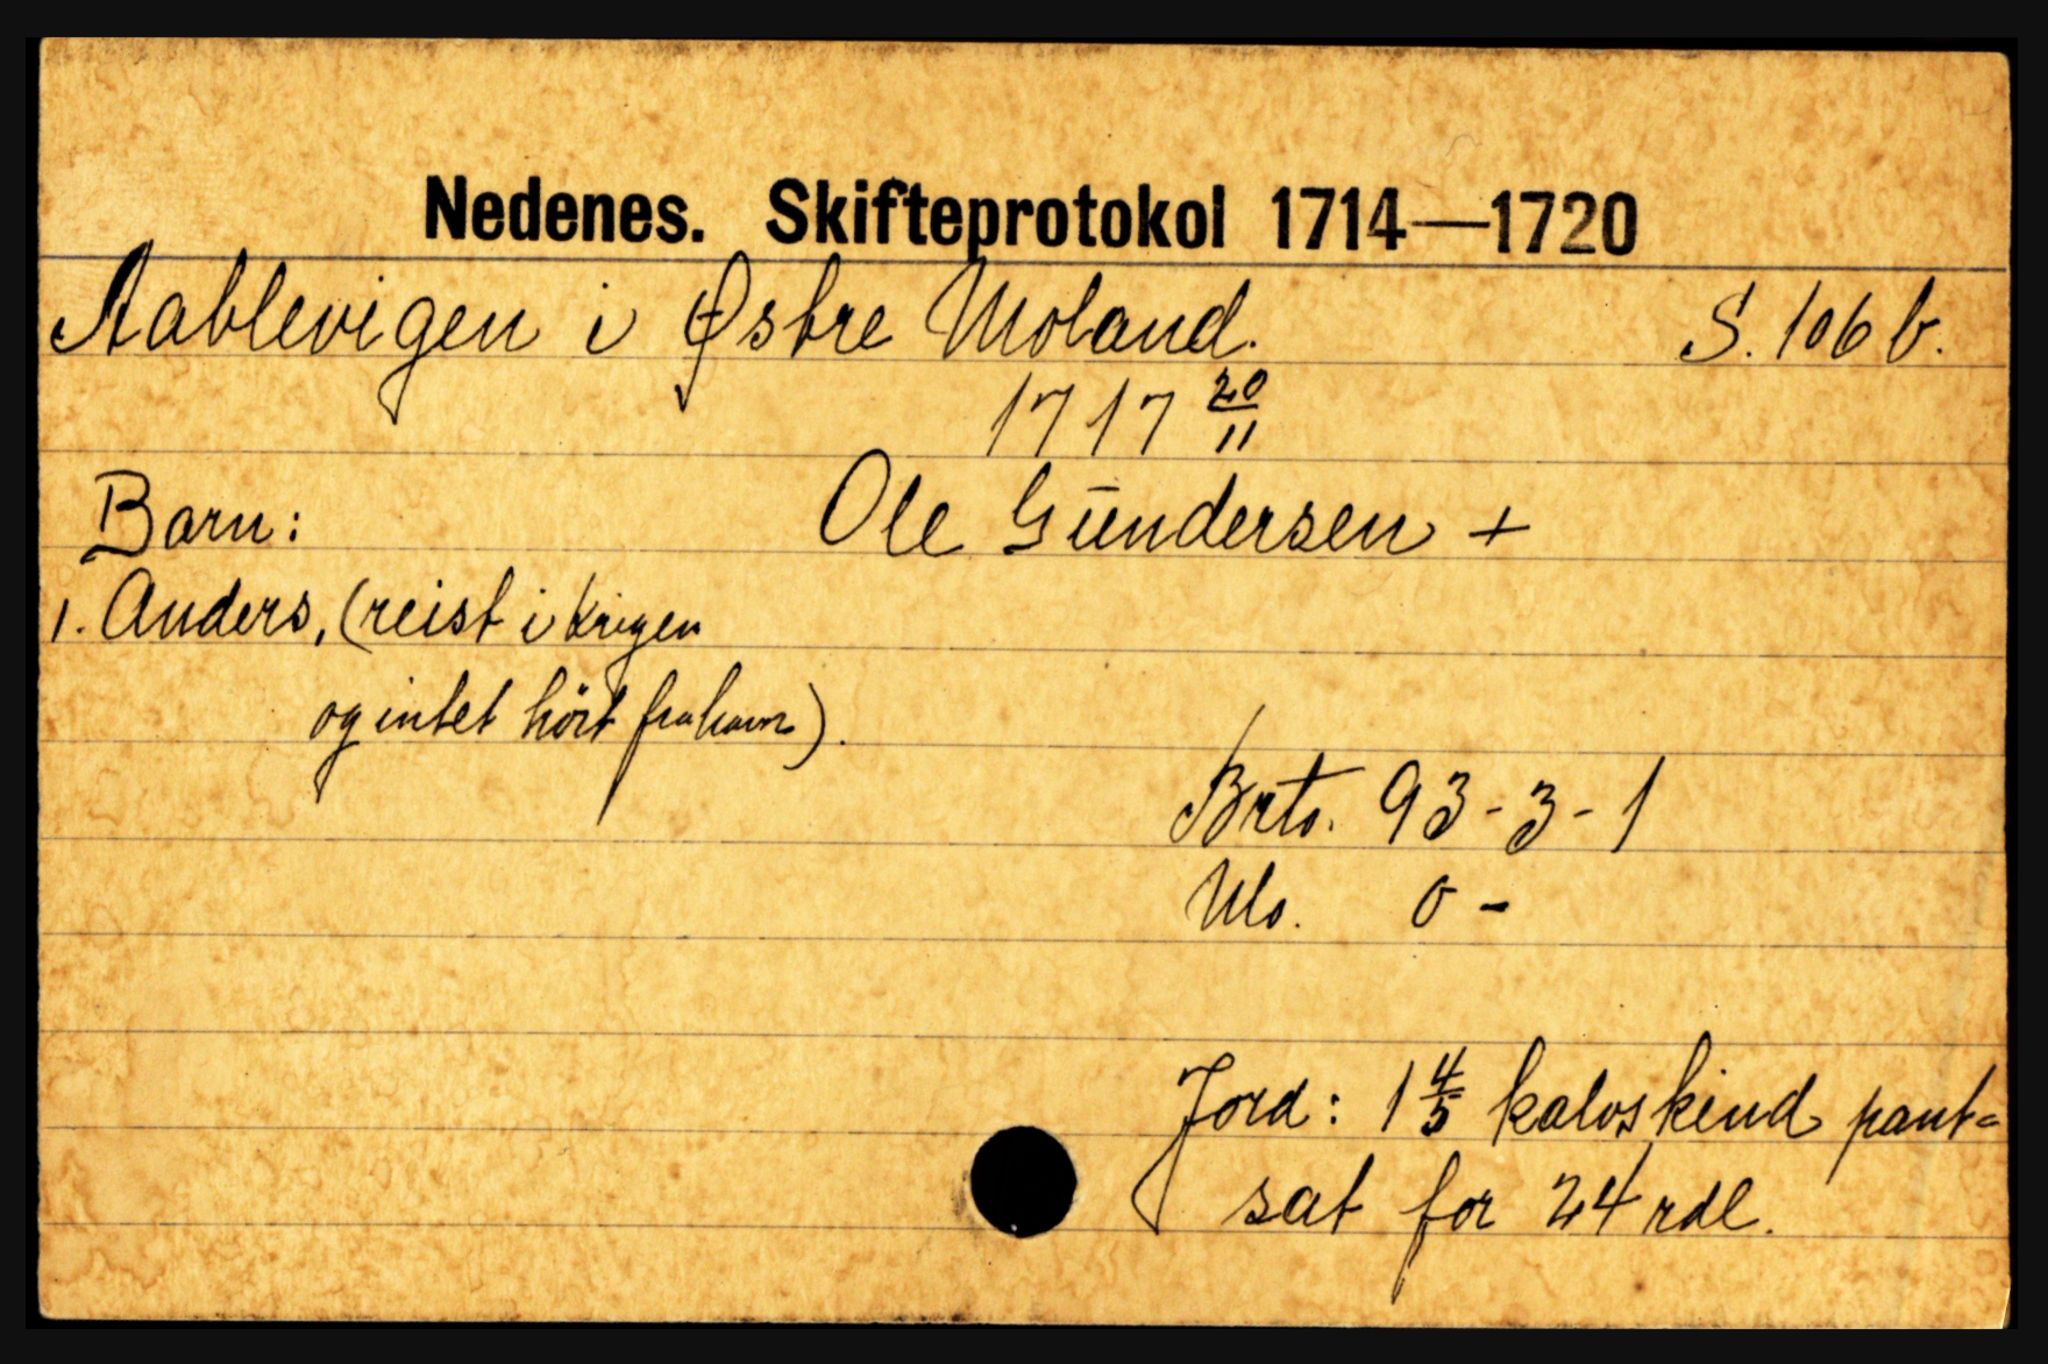 Nedenes. Skifteprotokol 1714—1720
Aablevigen i Østre Moland. S. 106 b.
1717 20/11
Barn: Ole Gundersen +
1. Anders, (reist i Krigen
og intet hört fra ham).
Brto. 93 - 3 - 1
Nto. 0 -
Jord: 1 4/5 kalvskind pant=
sat for 24 rdl.